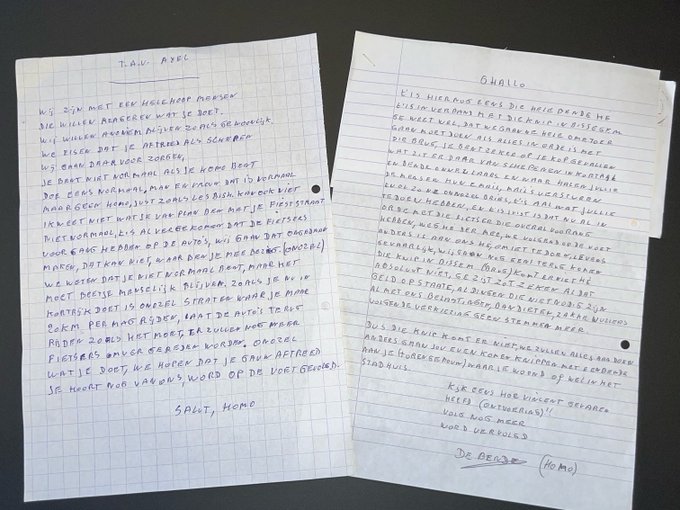 T.A.V. AXEL
WIJ ZIJN MET EEN HELE HOOP MENSEN
DIE WILLEN REAGEREN WAT JE DOET.
WIJ WILLEN ANONIEM BLIJVEN ZOALS GEWOONLIJK.
WE EISEN DAT JE AFTREED ALS SCHEPEN
WIJ GAAN DAAR VOOR ZORGEN,
JE BENT NIET NORMAAL ALS JE HOMO BENT
DOE EENS NORMAAL, MAN EN VROUW DAT IS NORMAAL
MAAR GEEN HOMO, JUST ZOALS LESBISH KAN OOK NIET
IK WEET NIET WAT JE VAN PLAN BEN MET JE FIETSTRAAT
NIET NORMAAL, T'IS AL VER GEKOMEN DAT DE FIETSERS
VOORGANG HEBBEN OP DE AUTO'S, WIJ GAAN DAT
MAKEN, DAT KAN NIET, WAAR BEN JE MEE BEZIG (ONOZEL)
WE WETEN DAT JE NIET NORMAAL BENT, MAAR HET
MOET BEETJE MENSELIJK BLIJVEN, ZOALS JE NU IN
KORTRIJK DOET IS ONOZEL STRATEN WAAR JE MAAR
20KM. PER MAG RIJDEN, LAAT DE AUTO'S TERUG
RIJDEN ZOALS HET MOET, ER ZULLEN NOG MEER
FIETSERS OMVER GEREDEN WORDEN. ONOZEL
WAT JE DOET, WE HOPEN DAT JE GAUW AFTREED
JE HOORT NOG VAN ONS, WORD OP DE VOET GEVOLGD.
SALUT, HOMO
GHALLO
T'IS HIER NOG EENS DIE HELE BENDE HE
T'IS IN VERBAND MET DIE KNIP IN BISSEGEM
GE WEET WEL, DAT WE GAAN WE HELE
GAAN MOET DOEN ALS ALLES IN ORDE IS MET
DIE BRUG, JE BENT ZEKER OP JE KOP GEVALLEN
WAT ZIT ER DAAR VAN SCHEPENEN IN KORTRIJK
EN BENDE ONNOZELAARS EN NAAR HALEN JULLIE
DE MENSEN HUN EMAIL, MAIL'S VERSTUREN
ZO'N ONNOZEL BRIEF, T'IS AL MAT JULLIE
TE DOEN HEBBEN, EN T'IS JUIST IS DAT NU AL IN
ORDE MET DIE FIETSER DIE OVERAL VOORRANG
HEBBEN, WEG HE DER MEE, WE VOLGEN U OP DE VOET
ANDERS IZ AAN ONS HE, OM IET TE DOEN, LEVENS
GEVAARLIJK, WIJ GAAN NOG EENS TERUG KOMEN
DIE KNIP IN BISSEM (BRUG) KOMT ER NIET HE
ABSOLUUT NIET, GE ZIJT ZOT ZEKER AL DAT
GELD OP STRAAT, AL DINGEN DIE NIET NODIG ZIJN
AL MET ONS BELASTINGEN, BANDIETEN, ZAKKEVULLERS
VOLGENDE VERKIEZING GEEN STEMMEN MEER
DUS DIE KNIP KOMT ER NIET, WE ZULLEN ALLES AAN DOEN
ANDERS GAAN JOU EVEN KOMEN KNIPPEN MET EEN BENDE
AAN JE HUIS EN GEBOUW, WAAR JE WOOND OF WEL IN HET
STADHUIS.
KIJK EENS HOE VINCENT GEVAREN
HEEFD (ONTVOERING)!!
VOLG NOG MEER
WORD VERVOLGD
DE BENDE (HOMO)